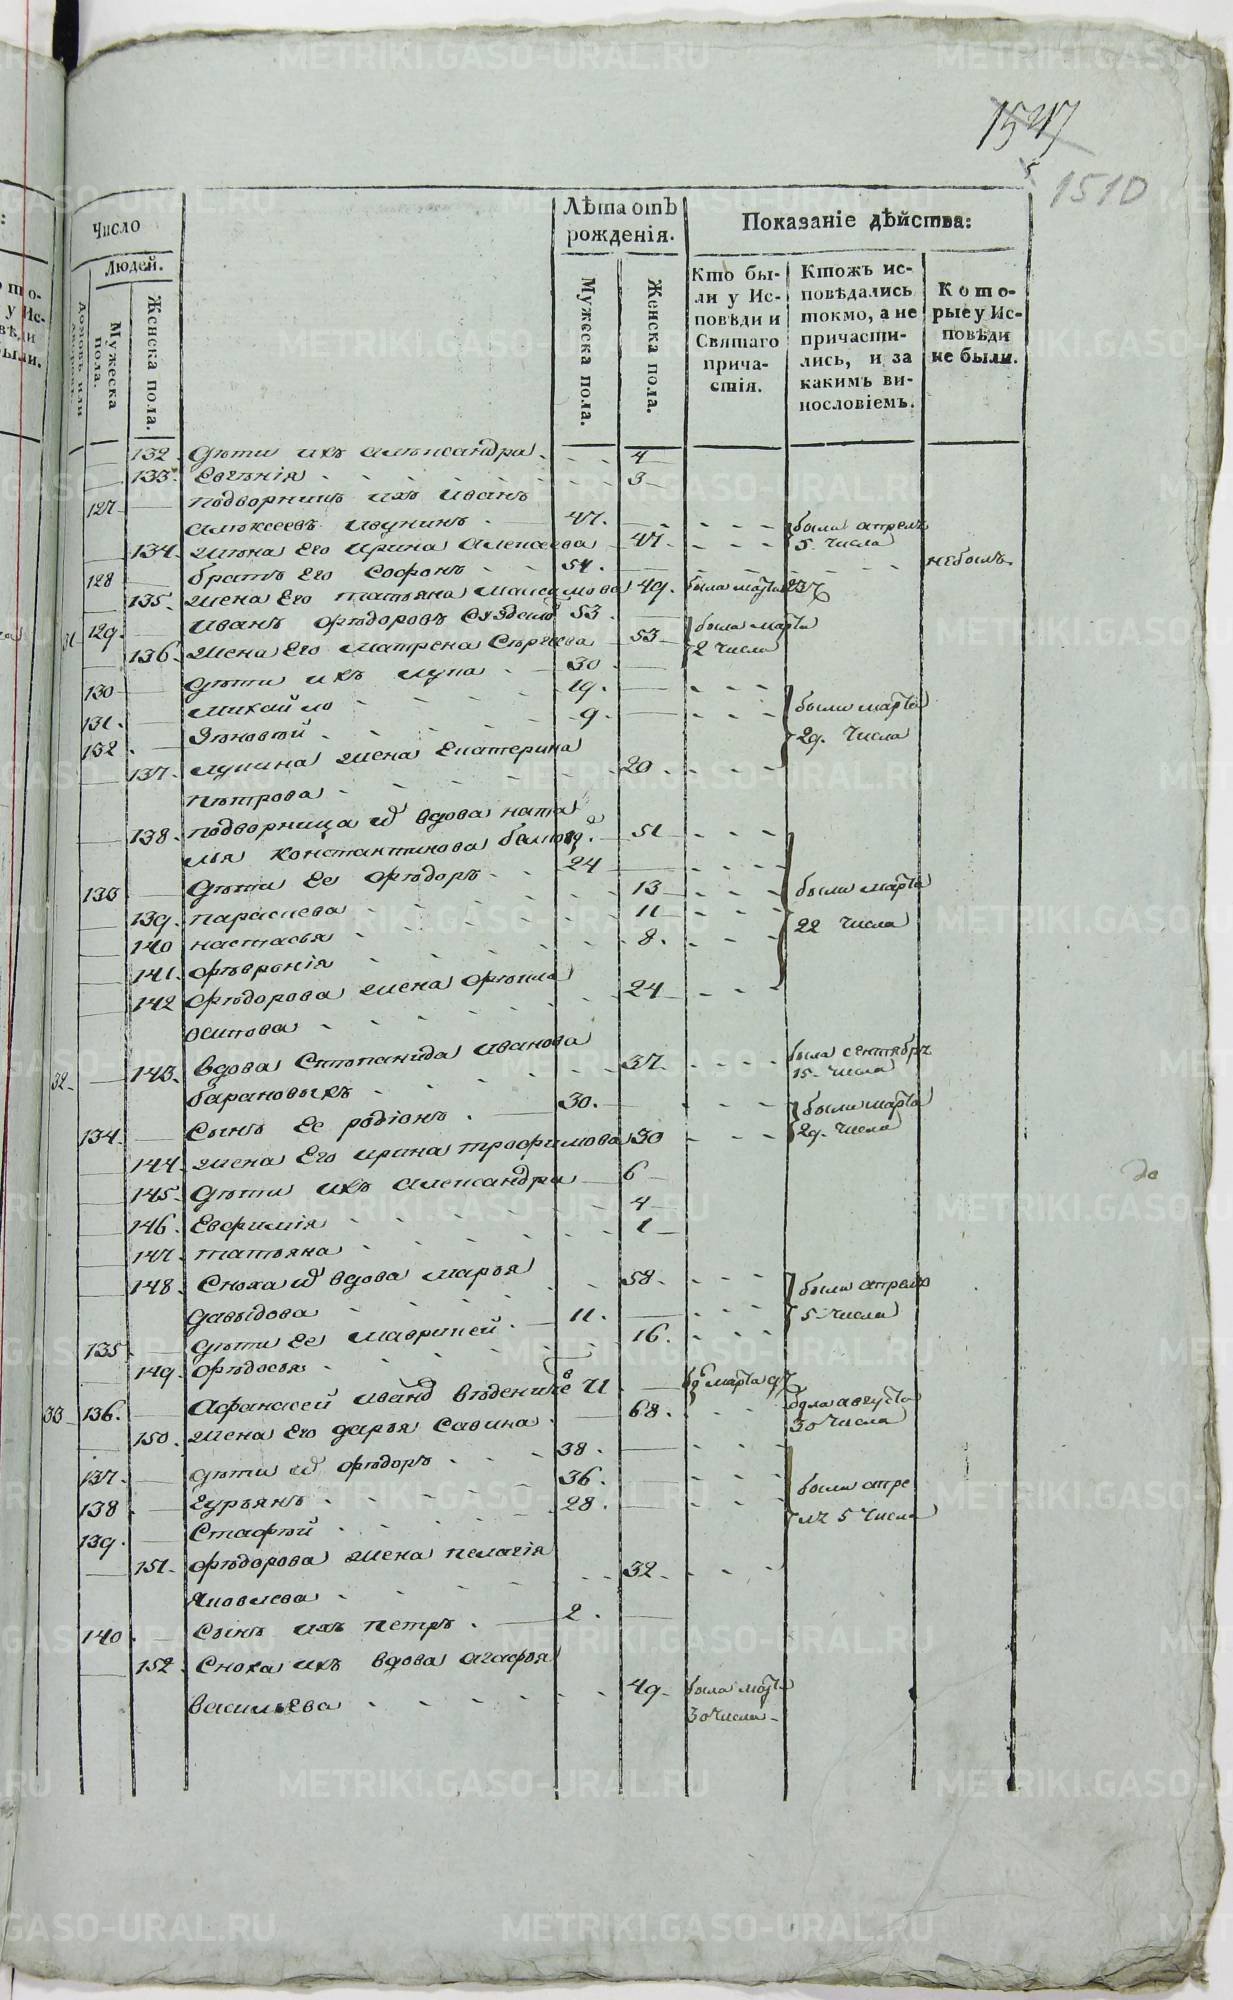 1547
1510
Число
Людей.
Домовъ или
Мужеска пола.
Женска пола.
Лѣта отъ рожденія.
Мужеска пола.
Женска пола.
Показаніе дѣйства:
Кто бы-
ли у Ис-
повѣди и
Святаго
прича-
стія.
Ктожъ ис-
повѣдались
токмо, а не
причасти-
лись, и за
какимъ ви-
нословіемъ.
Кото-
рые у Ис-
повѣди
не были.
132. дѣти ихъ александра 4
133. Евгѣнія 3
127 подворникъ ихъ Иванъ
алѣксеевъ 47. были апреля
134. жѣна Его ирина алексеева 47. 5. числа
128 братъ Его Софонъ 54. небылъ.
135. жена Его татьяна максимова 49. была марта
31 129. Иванъ Фѣдоровъ 53 были марта
136. жена Его матрена Сѣргѣева 53 2 числа
130 дѣти ихъ лупа 30
131. михайло 19. были марта
132. Зѣновѣй 9. 29. Числа
137. лупина жена Екатерина
пѣтрова 20
138. подворница вдова ната
лья Константинова 51
133 дѣти Ее Фѣдоръ 24 были марта
139. параскева 13 22 числа
140 настасья 11
141. Фѣвронія 8.
142 Фѣдорова жена Фѣкла
осипова 24
32. 143. вдова Стѣпанида иванова
барановыхъ 37. была сентября
15. числа
134. Сынъ Ее родіонъ 30. были марта
144. жена Его ирина трофимова 30 29. числа
145. дѣти ихъ александра 6
146. Евфимія 4
147. татьяна 1
148. Сноха вдова марья
давыдова 58. были апреля
135. дѣти Ее маврикей 11. 5 числа
149. Фѣдосья 16.
33 136. Афанасей марта
150. жена Его дарья Савина 68. была августа
30 числа
137. дѣти Фѣдоръ 38.
138 Гурьянъ 36. были апре
139. Стафѣй 28. ля 5 числа
151. Фѣдорова жена пелагія
Яковлева 32.
140. Сынъ ихъ петръ 2.
152. Сноха ихъ вдова агафья
васильева 49. была марта
30 числа
METRIKI.GASO-URAL.RU